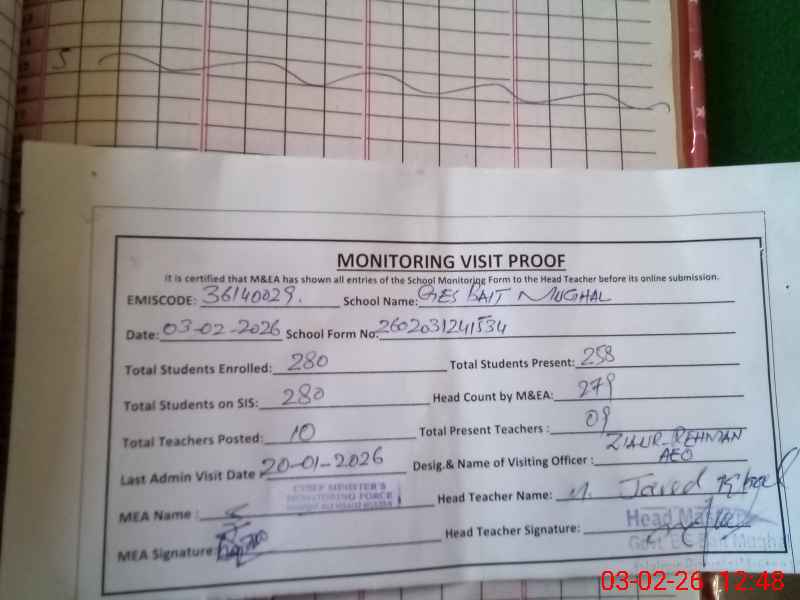 5
MONITORING VISIT PROOF
It is certified that M&EA has shown all entries of the School Monitoring Form to the Head Teacher before its online submission.
EMISCODE: 36140029. School Name: GES BAIT MUGHAL
Date: 03-02-2026 School Form No: 2602031241534
Total Students Enrolled: 280 Total Students Present: 258
Total Students on SIS: 280 Head Count by M&EA: 279
Total Teachers Posted: 10 Total Present Teachers : 09
Last Admin Visit Date 20-01-2026 Desig.& Name of Visiting Officer : ZIAUR-REHMAN AEO
CHIEF MINISTER'S
MONITORING FORCE
MEA Name : Head Teacher Name: M. Javed Iqbal
MEA Signature: Head Teacher Signature:
Head Master
Govt. Bait Mughal
03-02-26 12:48